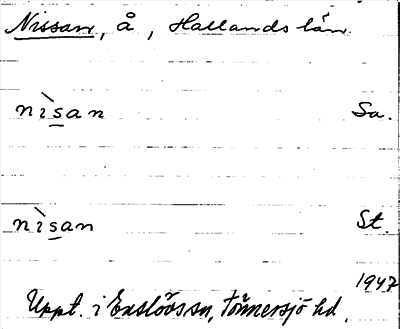 Nissan, å, Hallands län.
nìsan Sa.
nìsan St.
1947
Uppt. i Enslövs sn, Tönnersjö hd.